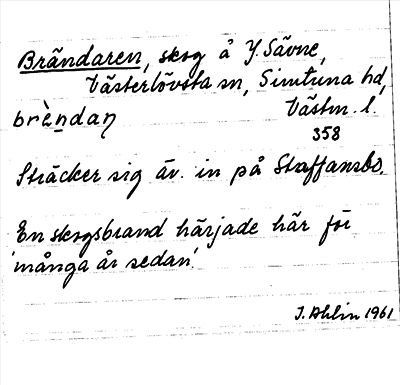 Brändaren, skog å Y. Sävne,
Västerlövsta sn, Simtuna hd,
brèndaṇ Västm. l.
358
Sträcker sig äv. in på Staffansbo.
'En skogsbrand härjade här för
många år sedan'.
I. Ahlin 1961